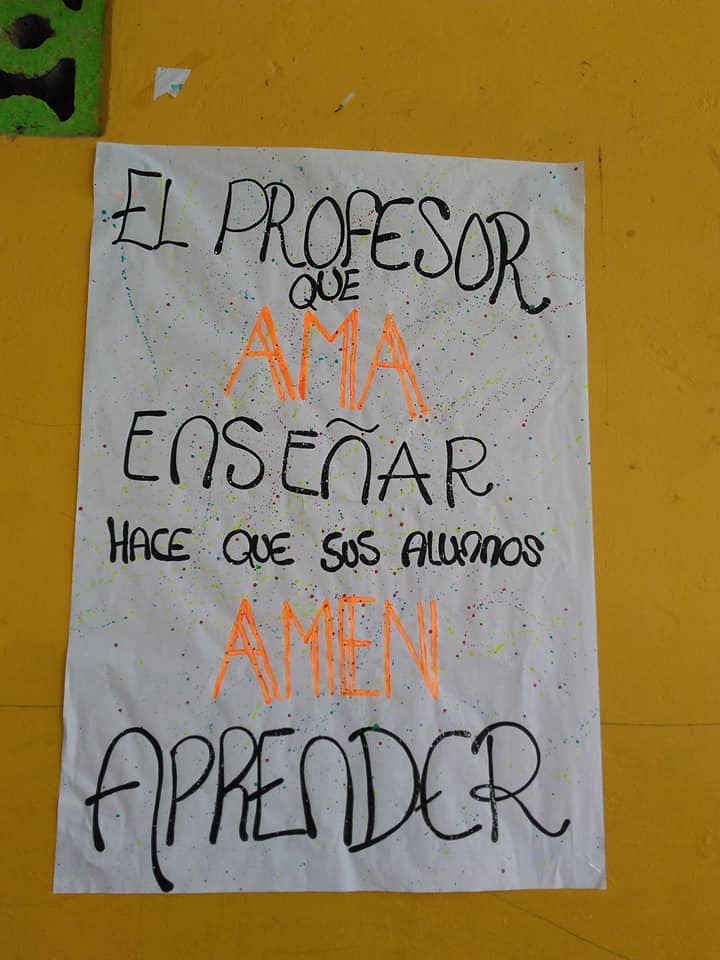 EL PROFESOR
QUE
AMA
ENSEÑAR
HACE QUE SUS ALUMNOS
AMEN
APRENDER